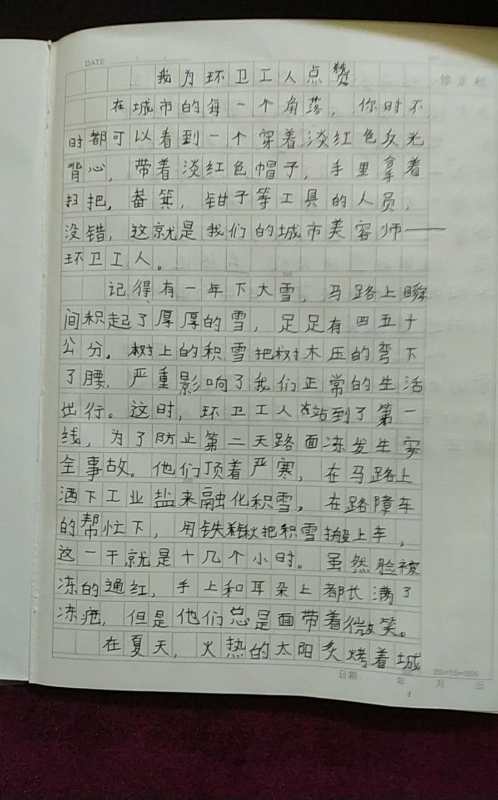 DATE
我为环卫工人点赞
在城市的每一个角落，你时不
时都可以看到一个穿着淡红色反光
背心，带着淡红色帽子，手里拿着
扫把，畚箕，钳子等工具的人员，
没错，这就是我们的城市美容师——
环卫工人。
记得有一年下大雪，马路上瞬
间积起了厚厚的雪，足足有四五十
公分。树上的积雪把树木压的弯下
了腰，严重影响了我们正常的生活
出行。这时，环卫工人站到了第一
线，为了防止第二天路面冻发生安
全事故。他们顶着严寒，在马路上
洒下工业盐来融化积雪，在路障车
的帮忙下，用铁锹把积雪搬上车，
这一干就是十几个小时。虽然脸被
冻的通红，手上和耳朵上都长满了
冻疮，但是他们总是面带着微笑。
在夏天，火热的太阳炙烤着城
日期： 年 月 日